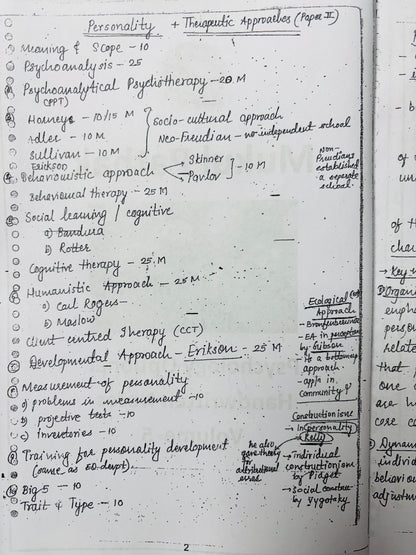 Personality + Therapeutic Approaches (Paper II)
Meaning & Scope - 10
Psychoanalysis - 25
Psychoanalytical Psychotherapy - 20 M
(PPT)
Horney - 10/15 M
Adler - 10 M
Sullivan - 10 M
Erickson
Socio-cultural approach
Neo-Freudian - no independent school
Non-Freudians established a separate school.
Behaviouristic approach
Skinner
Pavlov
- 10 M
Behavioural therapy - 25 M
Social learning / cognitive
a) Bandura
b) Rotter
Cognitive therapy - 25 M
Humanistic Approach - 25 M
a) Carl Rogers -
b) Maslow
Client centred Therapy (CCT)
Developmental Approach - Erikson - 25 M
Measurement of personality
a) problems in measurement - 10
b) projective tests - 10
c) inventories - 10
Training for personality development
(same as SD dept).
Big 5 - 10
Trait & Type - 10
Ecological
Approach
- Bronfenbrenner
- EA in perception
by Gibson
- He a bottom up
approach
- apln in
Community Ψ
Constructionism
→ In personality
Kelly
he also gave theory for attributional
→ individual
constructionism
by Piaget
→ social construc-
by Vygotsky
2